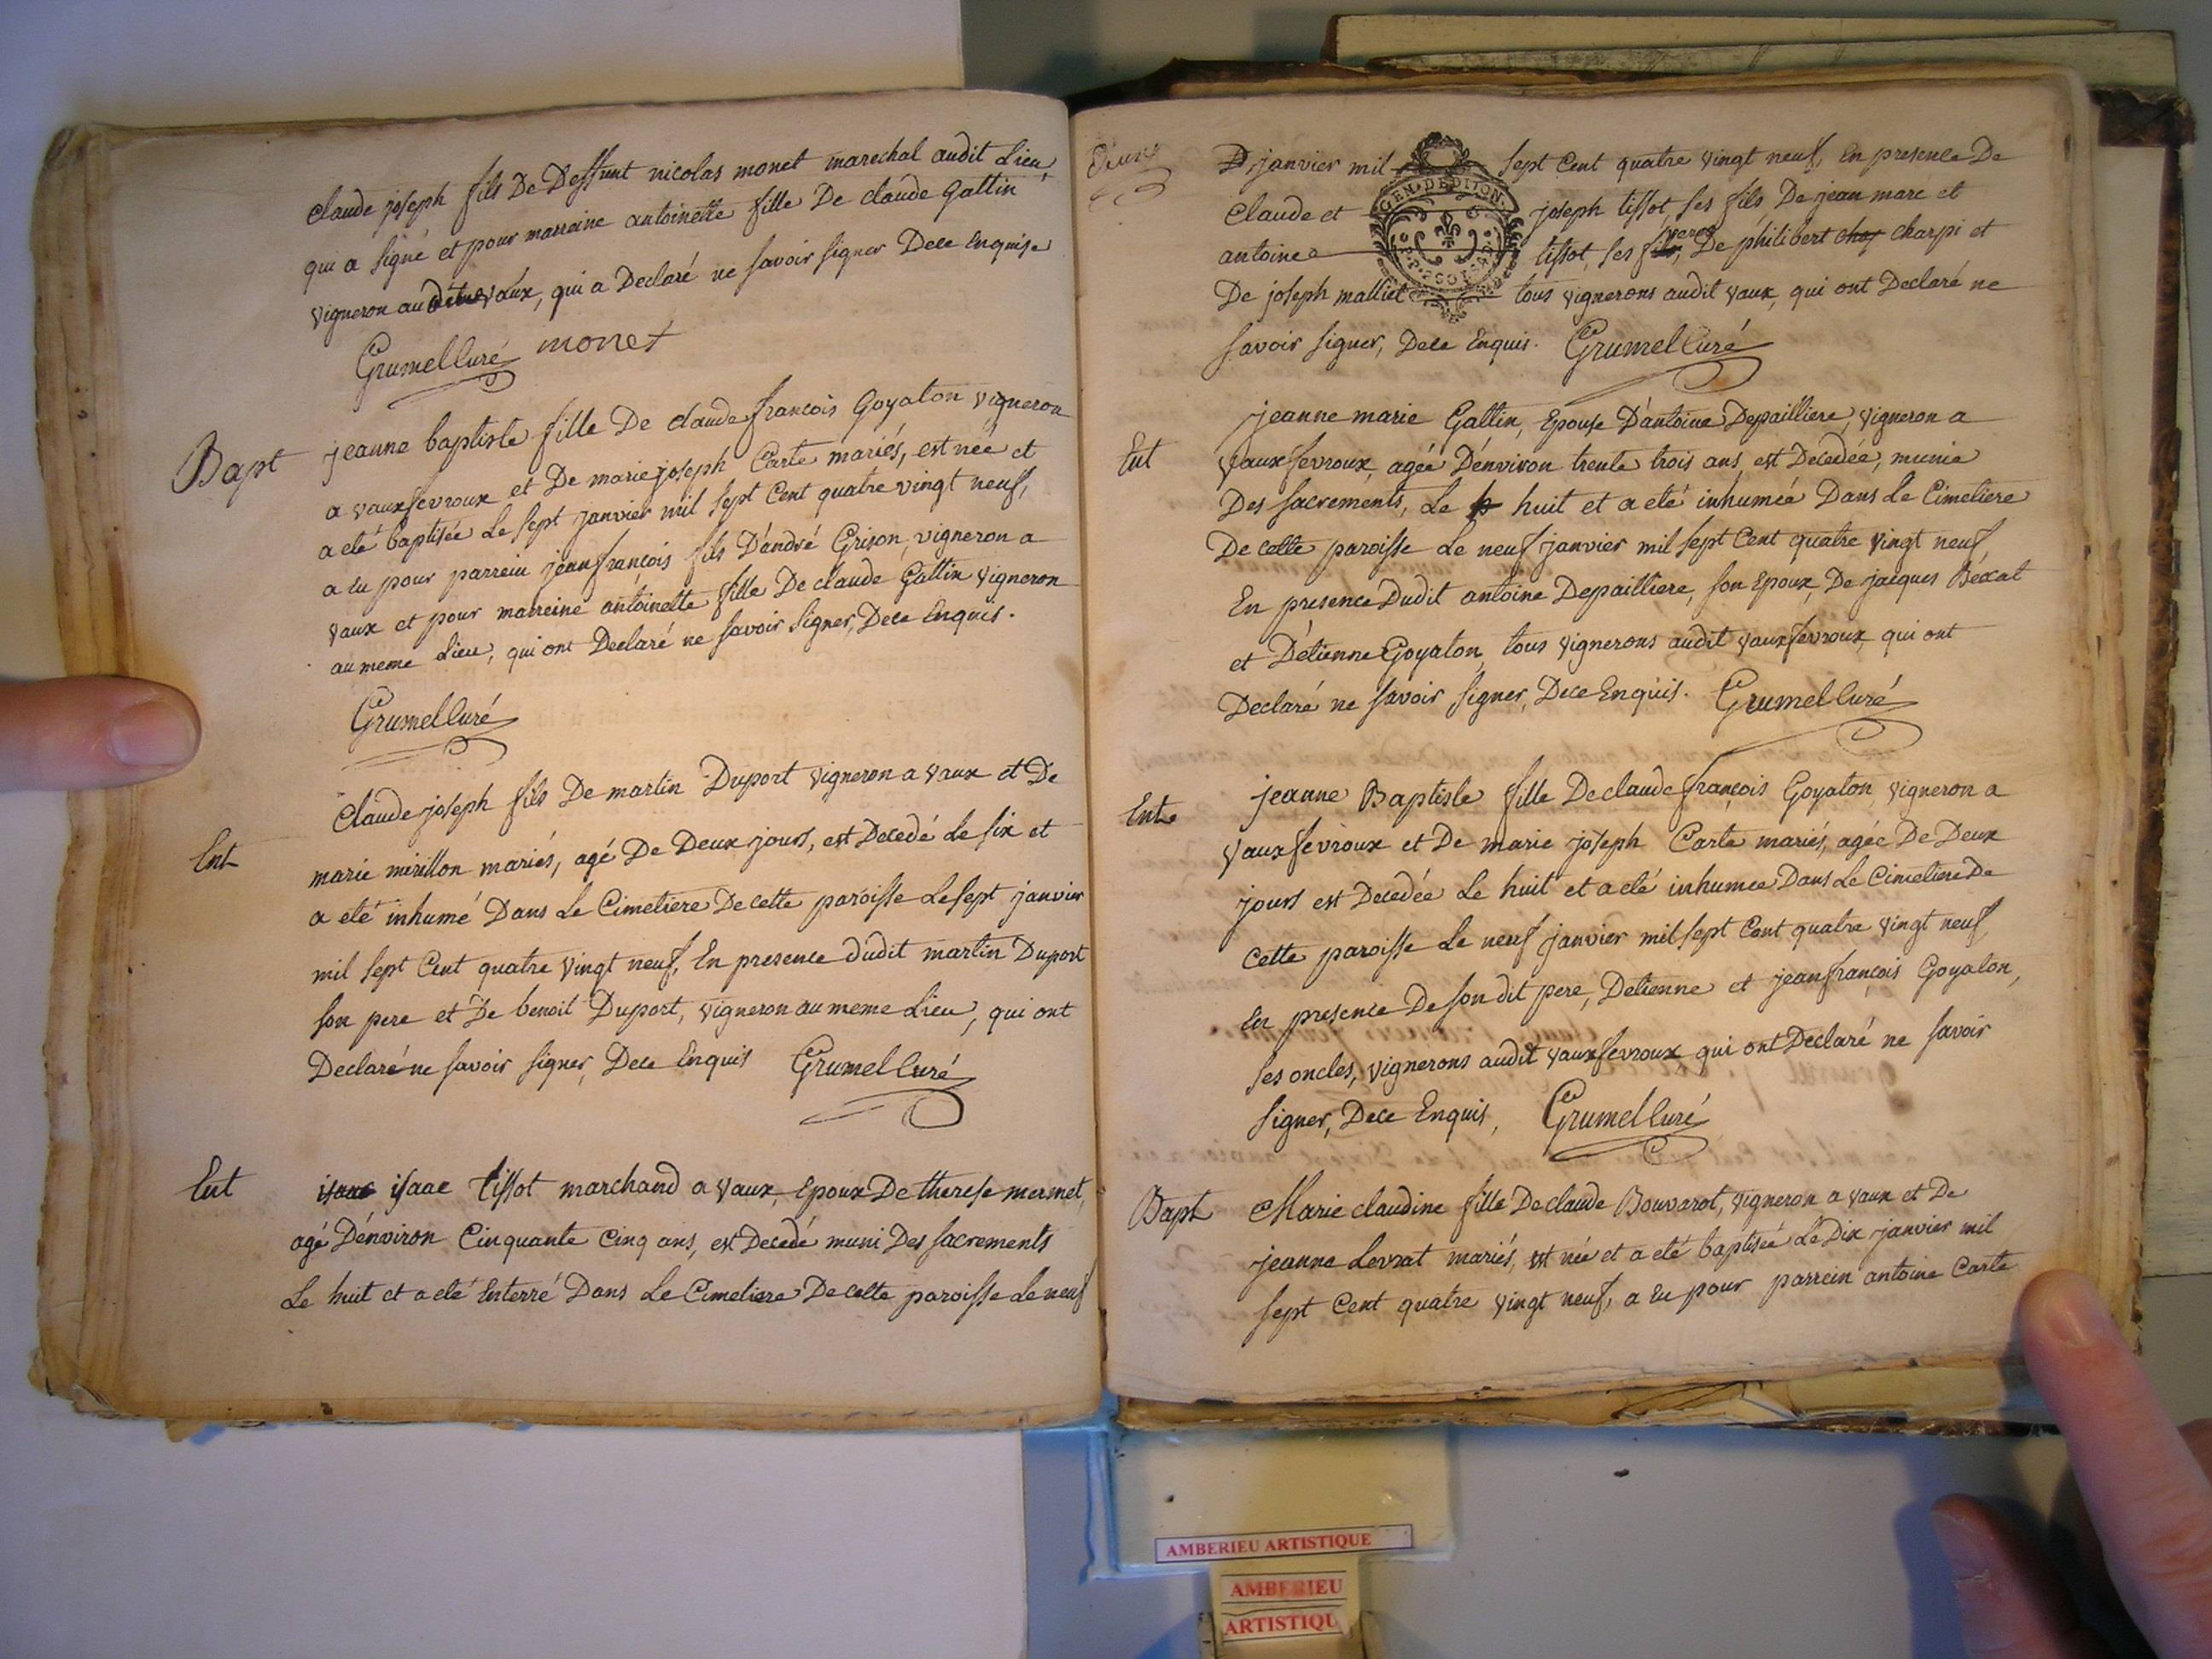 claude joseph fils De Deffunt nicolas monet marechal audit Lieu,
qui a signé et pour marreine antoinette fille De claude Gattin
vigneron au vaux, qui a Declaré ne savoir signer Dece Enquise
Grumel Curé monet
Bapt
jeanne baptiste fille De claude françois Goyaton vigneron
a vauxfevroux et De marie joseph Carte mariés, est née et
a eté baptisée Le sept janvier mil sept Cent quatre vingt neuf,
a Eu pour parrein jean françois fils D'andré Grison, vigneron a
vaux et pour marreine antoinette fille De claude Gattin vigneron
au meme Lieu, qui ont Declaré ne savoir signer, Dece Enquis.
Grumel Curé
Ent
Claude joseph fils De martin Duport vigneron a vaux et De
marie mirillon mariés, agé De Deux jours, est Decedé Le six et
a eté inhumé Dans Le Cimetiere De cette paroisse Le sept janvier
mil sept Cent quatre vingt neuf, En presence dudit martin Duport
son pere et De benoit Duport, vigneron au meme Lieu, qui ont
Declaré ne savoir signer, Dece Enquis Grumel Curé
Ent
isaac isaac tissot marchand a vaux, Epoux De therese mermet,
agé D'énviron Cinquante Cinq ans, est Decedé muni Des sacrements
Le huit et a eté Enterré Dans Le Cimetiere De cette paroisse Le neuf
janvier mil sept Cent quatre vingt neuf, En presence De
GEN. DE DIJON.
Claude et joseph tissot, ses fils De jean marc et
antoine tissot, ses freres, De philibert charpi et
De joseph malliet tous vignerons audit vaux, qui ont Declaré ne
savoir signer, Dece Enquis. Grumel Curé
Ent
jeanne marie Gattin, Epouse D'antoine Depailliere, vigneron a
vauxfevroux, agée D'énviron trente trois ans, est Decedée, munie
Des sacrements, Le huit et a eté inhumée Dans Le Cimetiere
De cette paroisse Le neuf janvier mil sept Cent quatre vingt neuf,
En presence Dudit antoine Depailliere, son Epoux, De jacques Béxat
et D'étienne Goyaton, tous vignerons audit vauxfevroux, qui ont
Declaré ne savoir signer, Dece Enquis. Grumel Curé
Ent
jeanne Baptiste fille De claude françois Goyaton, vigneron a
vauxfevroux et De marie joseph Carte mariés, agée De Deux
jours est Decedée Le huit et a eté inhumée Dans Le Cimetiere De
cette paroisse Le neuf janvier mil sept Cent quatre vingt neuf,
En presence De son dit pere, Detienne et jean françois Goyaton,
ses oncles, vignerons audit vauxfevroux qui ont Declaré ne savoir
signer, Dece Enquis, Grumel Curé
Bapt
Marie claudine fille De claude Bouvarot, vigneron a vaux et De
jeanne Levrat mariés, est née et a eté baptisée Le Dix janvier mil
sept Cent quatre vingt neuf, a Eu pour parrein antoine Carte
AMBERIEU ARTISTIQUE
AMBERIEU
ARTISTIQU